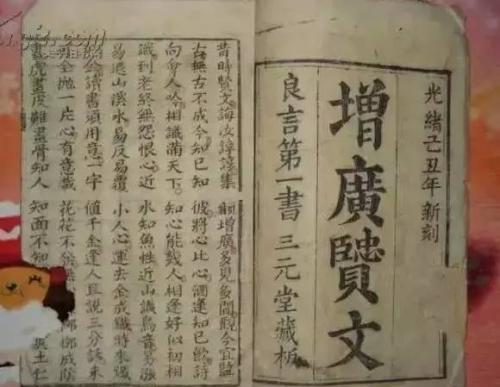 光緒己丑年 新刻
增廣贒文
良言第一書 三元堂藏板
昔時賢文誨汝諄諄集 韻增廣多見多聞觀今宜鑑
古無古不成今知己知 彼將心比心酒逢知己飲詩
向會人吟相識滿天下 知心能幾人相逢好似初相
識到老終無怨恨心近 水知魚性近山識鳥音易漲
易退山溪水易反易覆 小人心運去金成鐵時來鐵
似金讀書須用意一字 值千金逢人且說三分話未
可全拋一片心有意栽 花花不發無 柳柳成蔭
畫虎畫皮難畫骨知人 知面不知 糞土仁